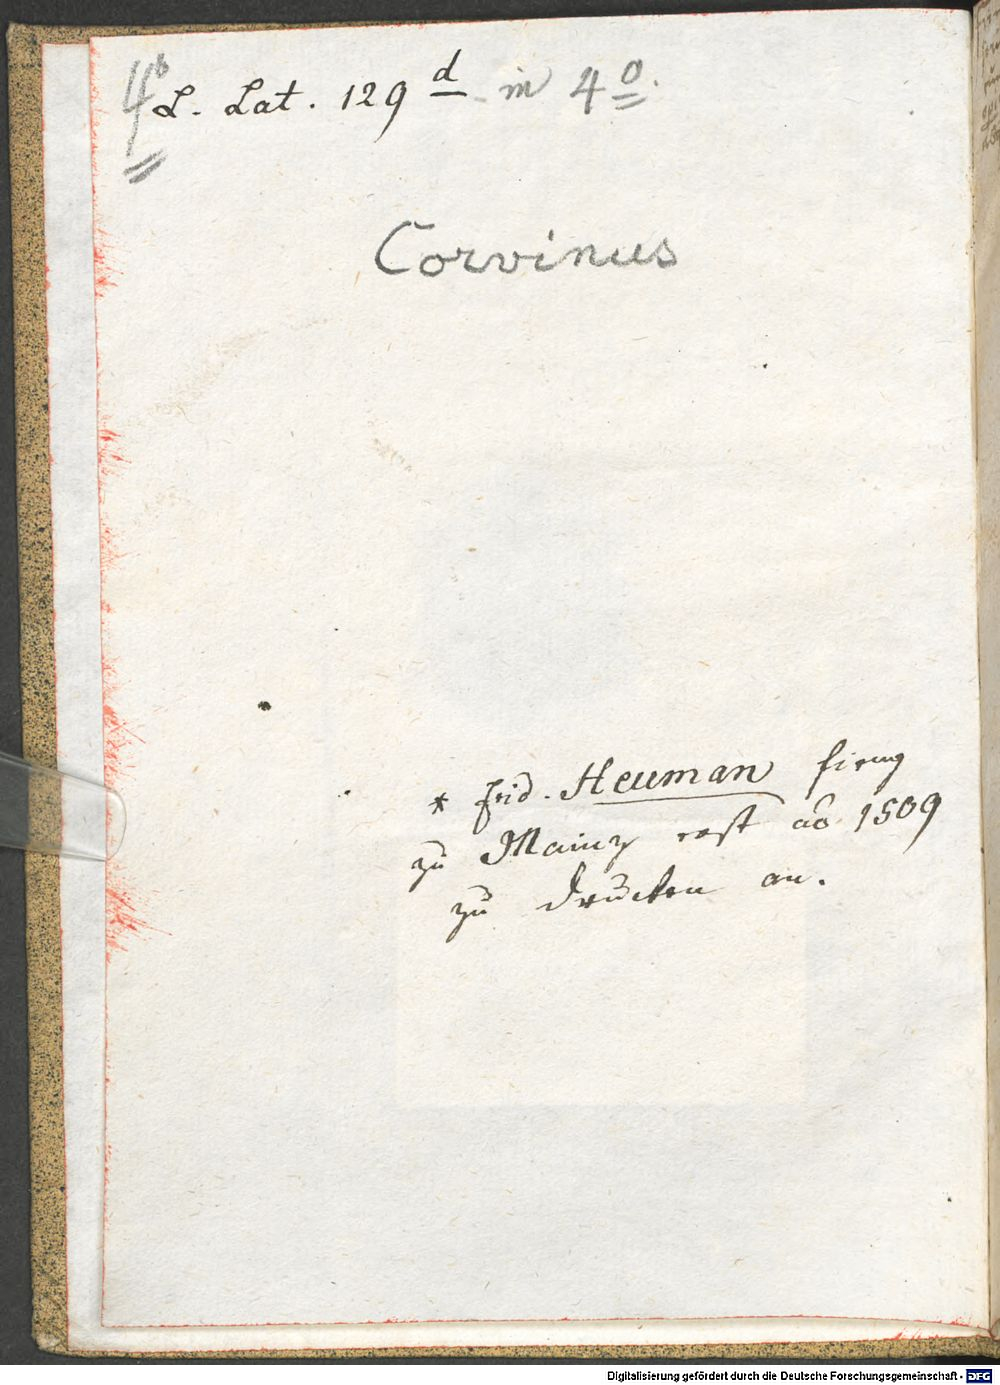 4°
L. Lat. 129 d in 4o.
Corvinus
* frid. Heuman fieng
zu Mainz erst ao 1509
zu drucken an.
Digitalisierung gefördert durch die Deutsche Forschungsgemeinschaft - DFG